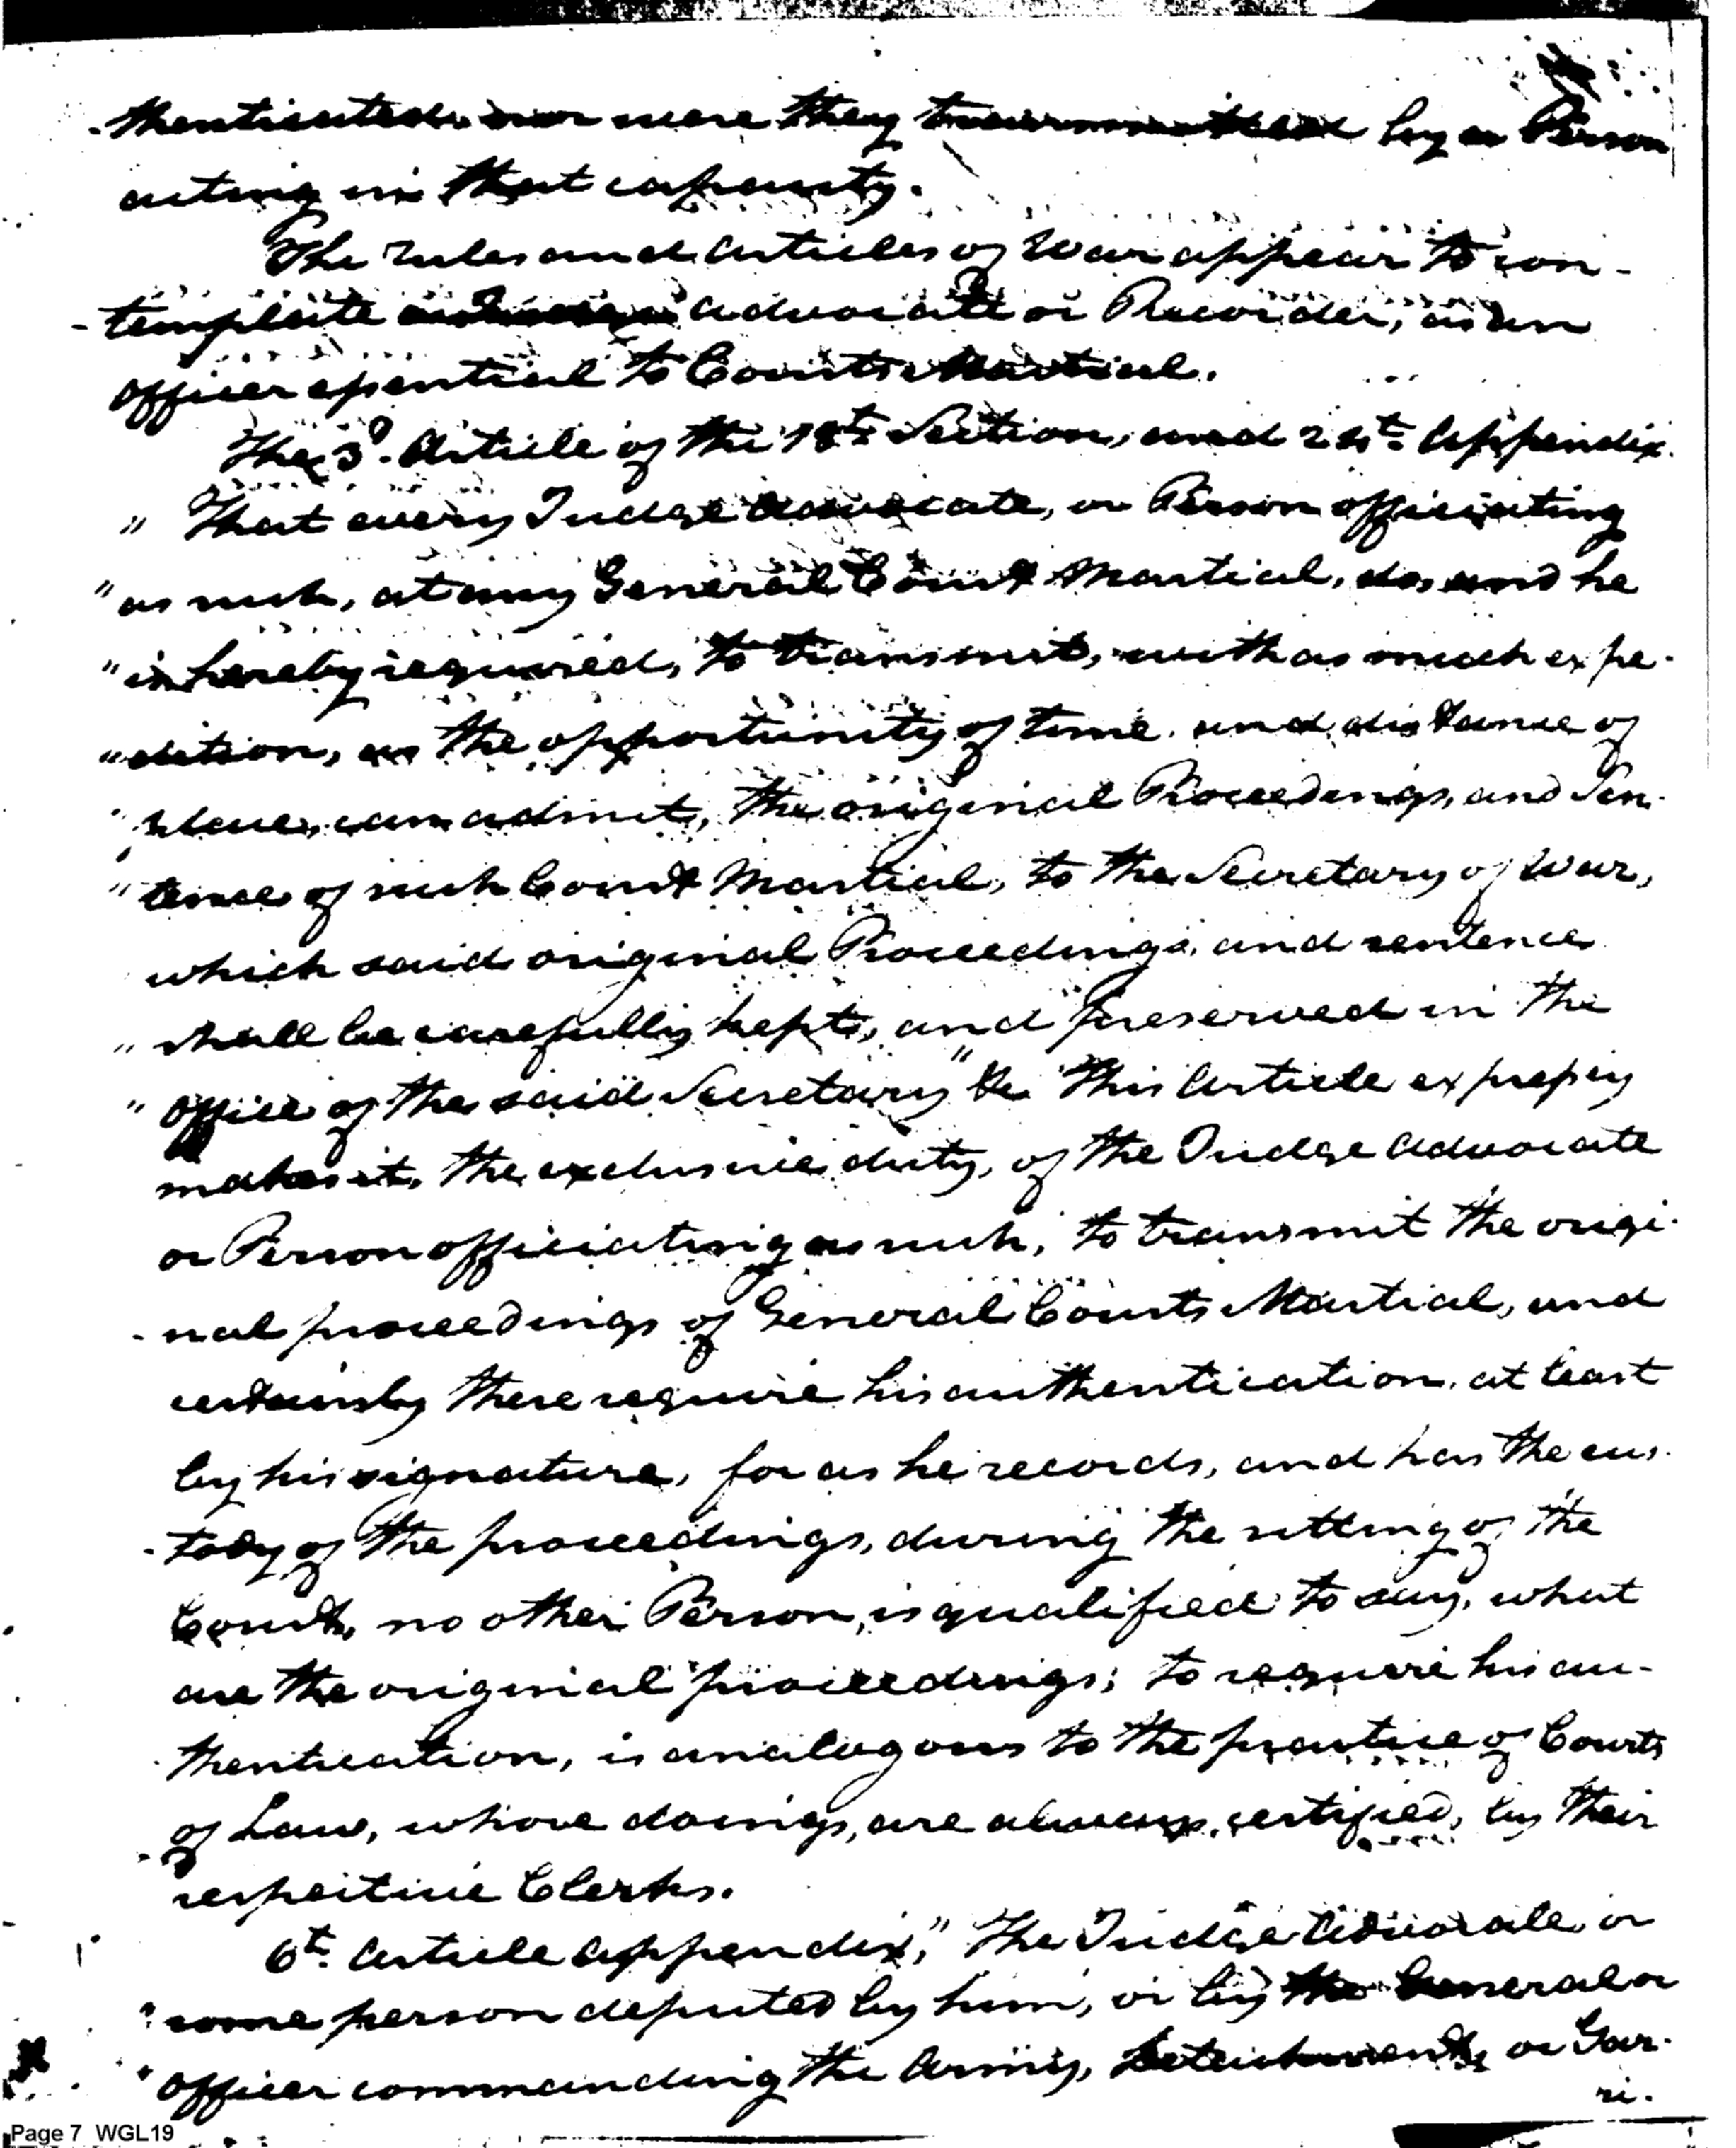 -thenticated nor were they transmitted by a Person
acting in that capacity.
The rules and articles of War appear to con-
-template a Judge advocate or Recorder, as an
officer essential to Courts Martial.
The 3d. Article of the 18th. Section, and 24th. Appendix.
" That every Judge advocate, or Person officiating
" as such, at any General Court Martial, do, and he
" is hereby required, to transmit, with as much expe-
" dition, as the opportunity of time and distance of
" place, can admit, the original Proceedings, and Sen-
" tence of such Court Martial, to the Secretary of War,
which said original Proceedings, and sentence
" shall be carefully kept, and preserved in the
" office of the said Secretary" &c This Article expressly
makes it, the exclusive duty, of the Judge Advocate
or Person officiating as such, to transmit the origi-
-nal proceedings of General Courts Martial, and
certainly these require his authentication, at least
by his signature, for as he records, and has the cus-
-tody of the proceedings, during the sitting of the
Court, no other Person, is qualified to say, what
are the original proceedings; to require his au-
-thentication, is analogous to the practice of Courts
of Law, whose doings, are always, certified, by their
respective Clerks.
6th. Article appendix, "The Judge Advocate or
" some person deputed by him, or by the General or
" officer commanding the Army, Detachment, or Gar-
ri-
Page 7 WGL19